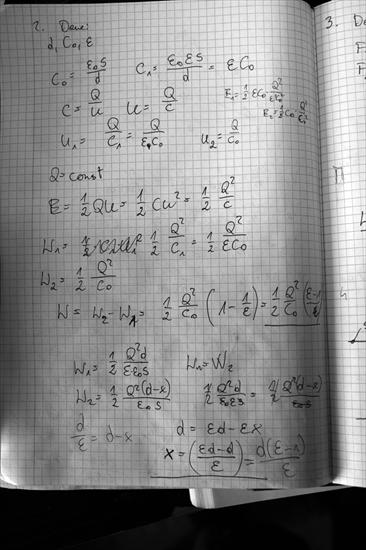 2. Dane:
d, C₀, ε
C₀ = ε₀S/d   C₁ = ε₀εS/d = εC₀
C = Q/U   U = Q/C   E₁ = 1/2 εC₀ Q²/εC₀²
E₂ = 1/2 C₀ Q²/C₀²
U₁ = Q/C₁ = Q/ε₁C₀   U₂ = Q/C₀
Q = const
E = 1/2 QU = 1/2 CU² = 1/2 Q²/C
W₁ = 1/2 Q²/C₁ = 1/2 Q²/εC₀
W₂ = 1/2 Q²/C₀
W = W₂ - W₁ = 1/2 Q²/C₀ (1 - 1/ε) = 1/2 Q²/C₀ (ε-1
W₁ = 1/2 Q²d/εε₀S   W₁ = W₂
W₂ = 1/2 Q²(d-x)/ε₀S   1/2 Q²d/ε₀εS = 1/2 Q²(d-x)/ε₀S
d/ε = d-x   d = εd - εx
x = (εd-d/ε) = d(ε-1)/ε
3. D
F
F